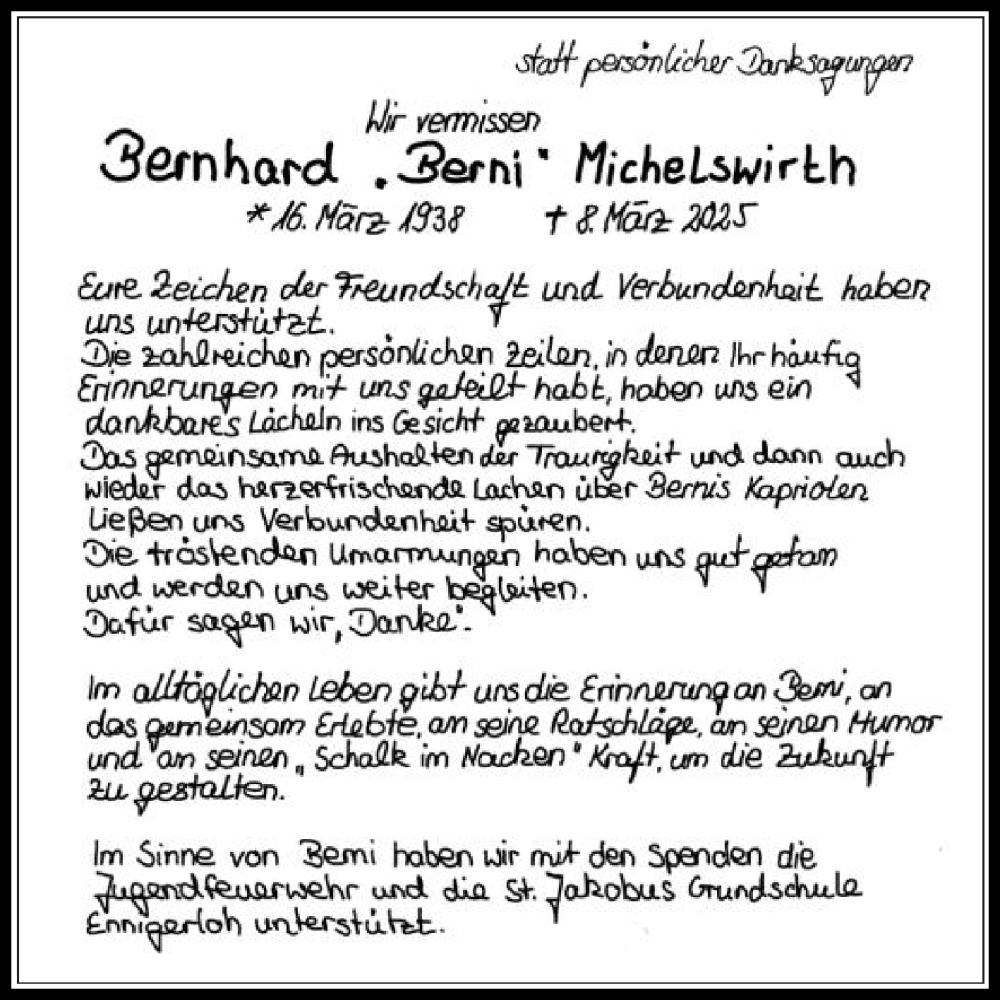 statt persönlicher Danksagungen
Wir vermissen
Bernhard „Berni“ Michelswirth
* 16. März 1938 † 8. März 2025
Eure Zeichen der Freundschaft und Verbundenheit haben
uns unterstützt.
Die zahlreichen persönlichen Zeilen, in denen Ihr häufig
Erinnerungen mit uns geteilt habt, haben uns ein
dankbares Lächeln ins Gesicht gezaubert.
Das gemeinsame Aushalten der Traurigkeit und dann auch
wieder das herzerfrischende Lachen über Bernis Kapriolen
ließen uns Verbundenheit spüren.
Die tröstenden Umarmungen haben uns gut getan
und werden uns weiter begleiten.
Dafür sagen wir „Danke“.
Im alltäglichen Leben gibt uns die Erinnerung an Berni, an
das gemeinsam Erlebte, an seine Ratschläge, an seinen Humor
und an seinen „Schalk im Nacken“ Kraft, um die Zukunft
zu gestalten.
Im Sinne von Berni haben wir mit den Spenden die
Jugendfeuerwehr und die St. Jakobus Grundschule
Ennigerloh unterstützt.